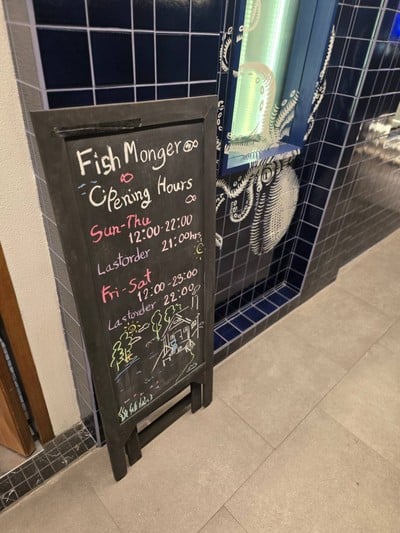 Fish Monger
Opening Hours
Sun-Thu
12:00-22:00
Lastorder 21:00hrs
Fri-Sat
12:00-23:00
Lastorder 22:00